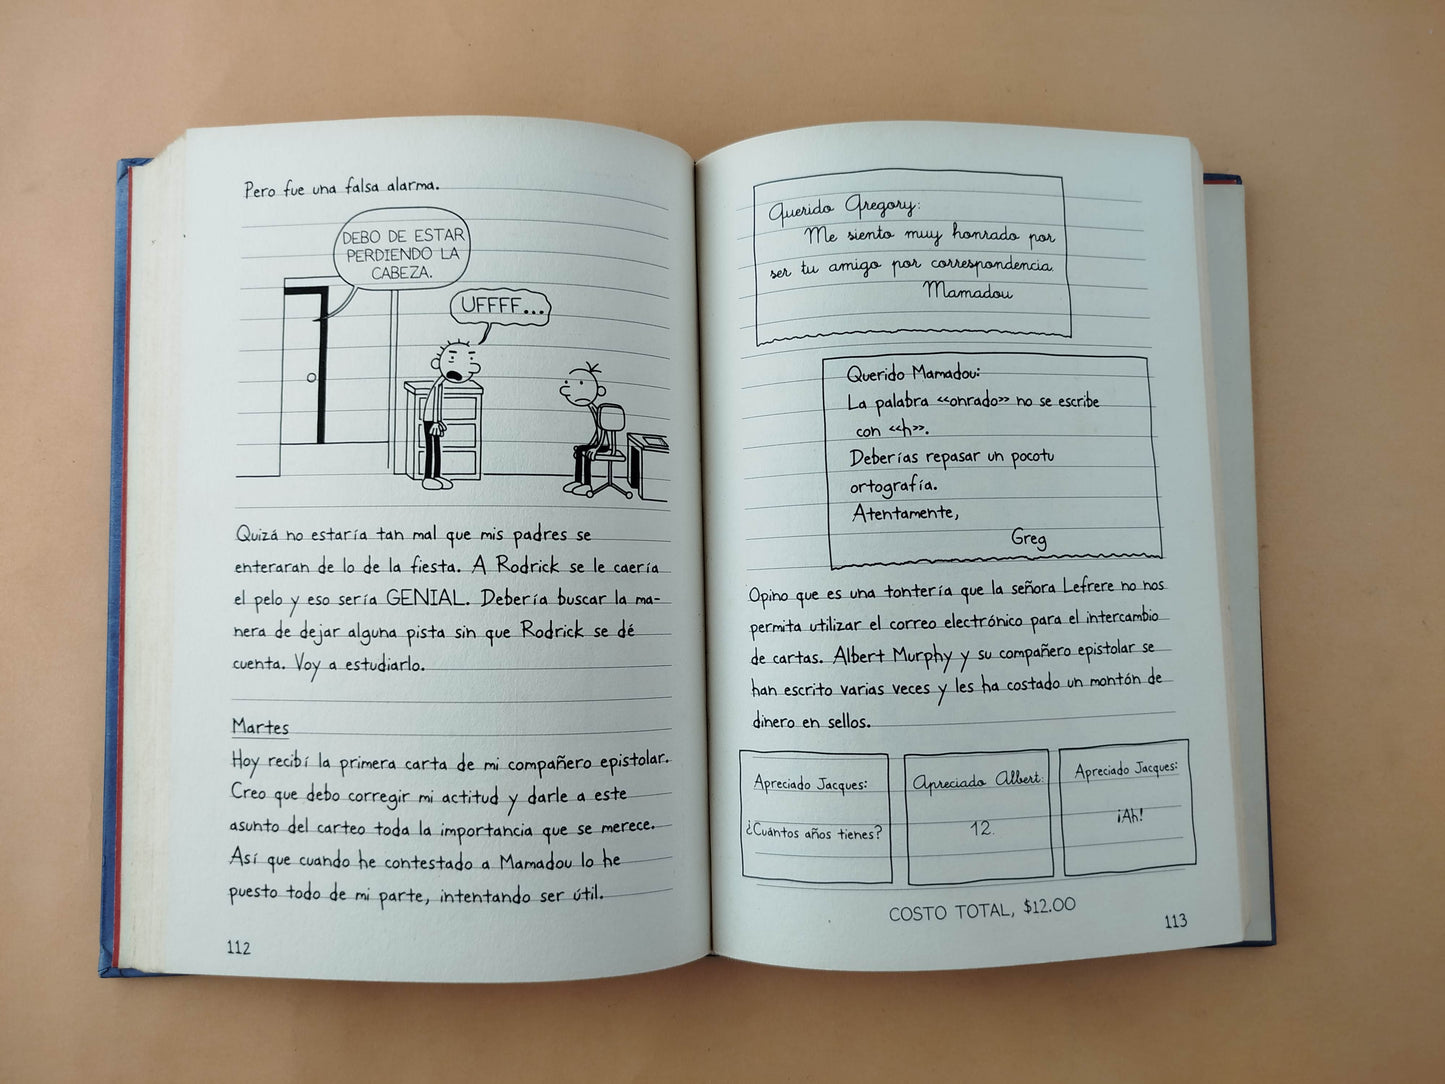 Pero fue una falsa alarma.
DEBO DE ESTAR
PERDIENDO LA
CABEZA.
UFFFF...
Quizá no estaría tan mal que mis padres se
enteraran de lo de la fiesta. A Rodrick se le caería
el pelo y eso sería GENIAL. Debería buscar la ma-
nera de dejar alguna pista sin que Rodrick se dé
cuenta. Voy a estudiarlo.
Martes
Hoy recibí la primera carta de mi compañero epistolar.
Creo que debo corregir mi actitud y darle a este
asunto del carteo toda la importancia que se merece.
Así que cuando he contestado a Mamadou lo he
puesto todo de mi parte, intentando ser útil.
112
Querido Gregory:
Me siento muy honrado por
ser tu amigo por correspondencia.
Mamadou
Querido Mamadou:
La palabra «onrado» no se escribe
con «h».
Deberías repasar un pocotu
ortografía.
Atentamente,
Greg
Opino que es una tontería que la señora Lefrere no nos
permita utilizar el correo electrónico para el intercambio
de cartas. Albert Murphy y su compañero epistolar se
han escrito varias veces y les ha costado un montón de
dinero en sellos.
Apreciado Jacques:
¿Cuántos años tienes?
Apreciado Albert:
12.
Apreciado Jacques:
¡Ah!
COSTO TOTAL, $12.00
113